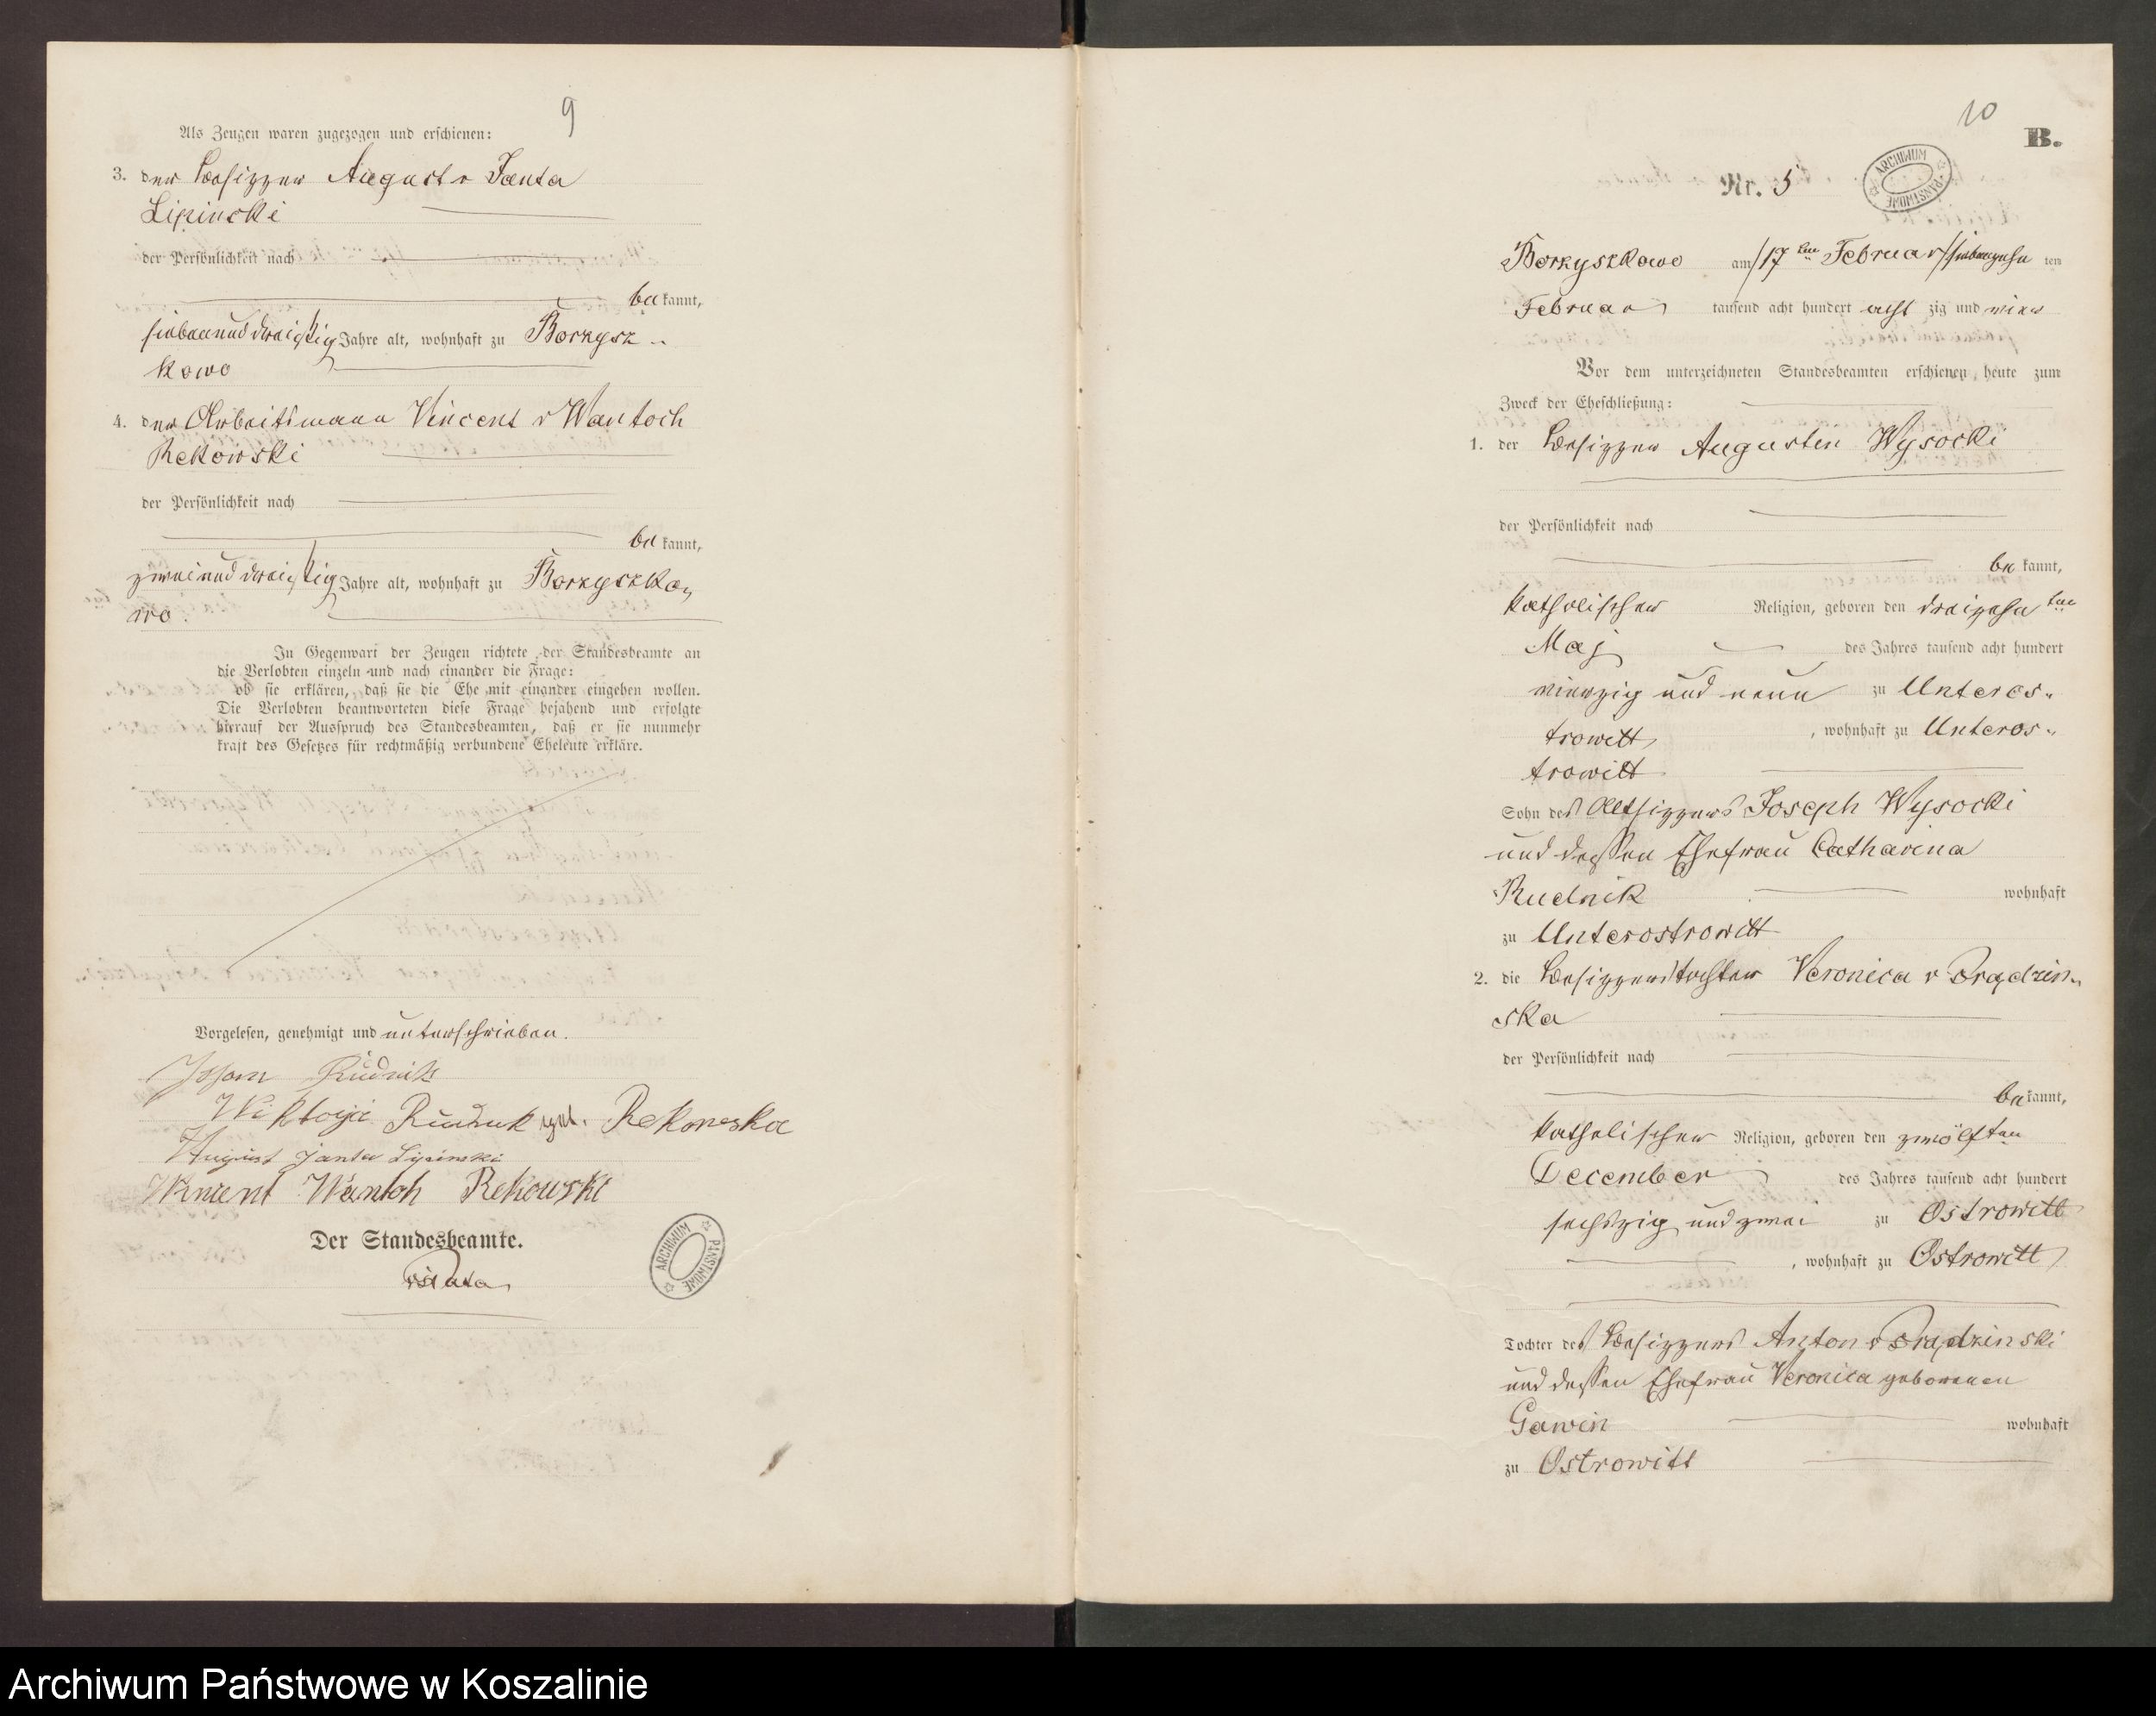 9
Als Zeugen waren zugezogen und erschienen:
3. der Besitzer August v Janta
Lipinski
der Persönlichkeit nach
be kannt,
siebenunddreißig Jahre alt, wohnhaft zu Borzysz-
kowo
4. der Arbeitsmann Vincent v Wantoch
Rekowski
der Persönlichkeit nach
be kannt,
zweiunddreißig Jahre alt, wohnhaft zu Borzyszko-
wo.
In Gegenwart der Zeugen richtete der Standesbeamte an
die Verlobten einzeln und nach einander die Frage:
ob sie erklären, daß sie die Ehe mit einander eingehen wollen.
Die Verlobten beantworteten diese Frage bejahend und erfolgte
hierauf der Ausspruch des Standesbeamten, daß er sie nunmehr
kraft des Gesetzes für rechtmäßig verbundene Eheleute erkläre.
Vorgelesen, genehmigt und unterschrieben.
Johann Rudnik
Wiktorja Rudnik geb. Rekowska
August Janta Lipinski
Vincent Wantoh Rekowski
Der Standesbeamte.
ARCHIWUM PAŃSTWOWE
10
B.
Nr. 5
ARCHIWUM PAŃSTWOWE
Borzyszkowo am /17ten Februar/ siebenzehn ten
Februar tausend acht hundert acht zig und vier
Vor dem unterzeichneten Standesbeamten erschienen heute zum
Zweck der Eheschließung:
1. der Besitzer Augustin Wysocki
der Persönlichkeit nach
be kannt,
katholischer Religion, geboren den dreizehn ten
Maj des Jahres tausend acht hundert
vierzig und neun zu Unteros-
trowitt, wohnhaft zu Unteros-
trowitt
Sohn des Altsitzers Joseph Wysocki
und dessen Ehefrau Catharina
Rudnik wohnhaft
zu Unterostrowitt
2. die Besitzerstochter Veronica v Prądzin-
ska
der Persönlichkeit nach
be kannt,
katholischer Religion, geboren den zwölften
December des Jahres tausend acht hundert
sechszig und zwei zu Ostrowitt
, wohnhaft zu Ostrowitt
Tochter des Besitzers Anton v Prądzinski
und dessen Ehefrau Veronica geborenen
Gawin wohnhaft
zu Ostrowitt
Archiwum Państwowe w Koszalinie